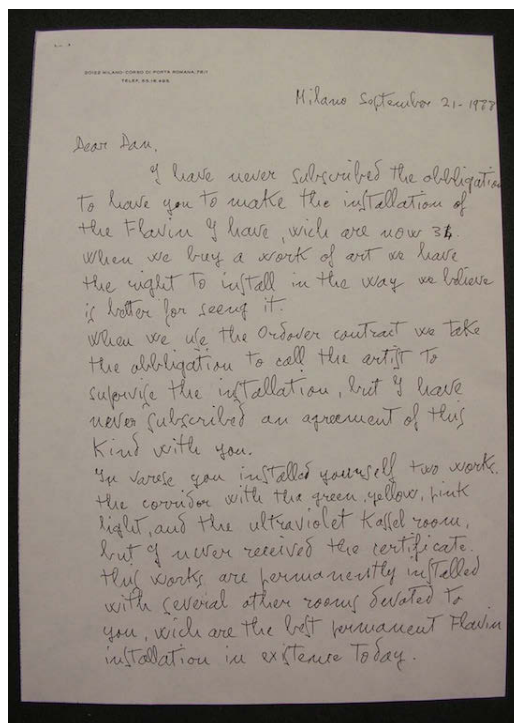 20122 MILANO CORSO DI PORTA ROMANA,
TELEF.
Milano September 21-1988
Dear Dan.
I have never subscribed the obbligation
to have you to make the installation of
the Flavin I have, wich are now
When we buy a work of art we have
the right to install in the way we believe
is better for seeng it.
When we use the Ordover contract we take
the obbligation to call the artist to
supervise the installation, but I have
never subscribed an agreement of this
kind with you.
In Varese you installed yourself two works.
the corridor with the green, yellow, pink
light, and the ultraviolet Kassel room,
but I never received the certificate.
this works are permanently installed
with several other rooms devoted to
you, wich are the best permanent Flavin
installation in existence today.